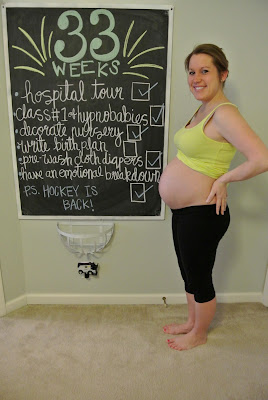 33
WEEKS
• hospital tour
class #1 of hypnobabies
• decorate nursery
• write birth plan
• pre-wash cloth diapers
• have an emotional breakdown
P.S. HOCKEY IS
BACK!